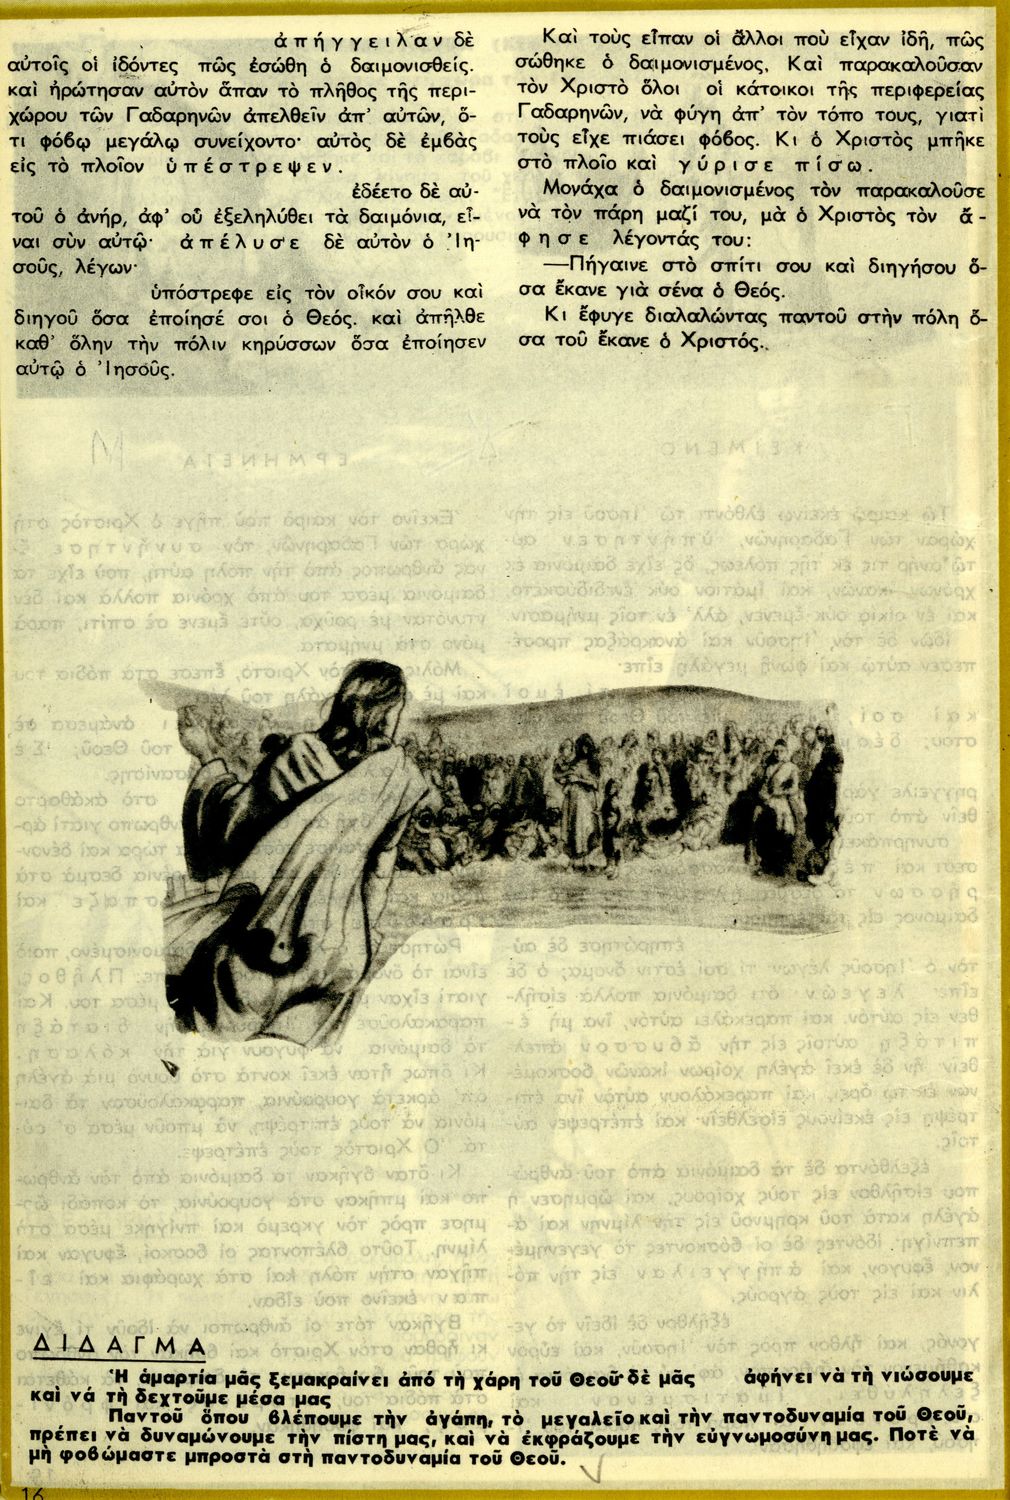 ἀπήγγειλαν δὲ
αὐτοῖς οἱ ἰδόντες πῶς ἐσώθη ὁ δαιμονισθείς.
καὶ ἠρώτησαν αὐτὸν ἅπαν τὸ πλῆθος τῆς περι-
χώρου τῶν Γαδαρηνῶν ἀπελθεῖν ἀπ' αὐτῶν, ὅ-
τι φόβῳ μεγάλῳ συνείχοντο· αὐτὸς δὲ ἐμβὰς
εἰς τὸ πλοῖον ὑπέστρεψεν.
ἐδέετο δὲ αὐ-
τοῦ ὁ ἀνήρ, ἀφ' οὗ ἐξεληλύθει τὰ δαιμόνια, εἶ-
ναι σὺν αὐτῷ· ἀπέλυσε δὲ αὐτὸν ὁ Ἰη-
σοῦς, λέγων·
ὑπόστρεφε εἰς τὸν οἶκόν σου καὶ
διηγοῦ ὅσα ἐποίησέ σοι ὁ Θεός. καὶ ἀπῆλθε
καθ' ὅλην τὴν πόλιν κηρύσσων ὅσα ἐποίησεν
αὐτῷ ὁ Ἰησοῦς.
Καὶ τοὺς εἶπαν οἱ ἄλλοι ποὺ εἶχαν ἰδῆ, πῶς
σώθηκε ὁ δαιμονισμένος. Καὶ παρακαλοῦσαν
τὸν Χριστὸ ὅλοι οἱ κάτοικοι τῆς περιφερείας
Γαδαρηνῶν, νὰ φύγη ἀπ' τὸν τόπο τους, γιατὶ
τοὺς εἶχε πιάσει φόβος. Κι ὁ Χριστὸς μπῆκε
στὸ πλοῖο καὶ γύρισε πίσω.
Μονάχα ὁ δαιμονισμένος τὸν παρακαλοῦσε
νὰ τὸν πάρη μαζί του, μὰ ὁ Χριστὸς τὸν ἄ-
φησε λέγοντάς του:
—Πήγαινε στὸ σπίτι σου καὶ διηγήσου ὅ-
σα ἔκανε γιὰ σένα ὁ Θεός.
Κι ἔφυγε διαλαλώντας παντοῦ στὴν πόλη ὅ-
σα τοῦ ἔκανε ὁ Χριστός.
ΔΙΔΑΓΜΑ
Ἡ ἁμαρτία μᾶς ξεμακραίνει ἀπό τὴ χάρη τοῦ Θεοῦ· δὲ μᾶς ἀφήνει νὰ τὴ νιώσουμε
καὶ νά τὴ δεχτοῦμε μέσα μας
Παντοῦ ὅπου βλέπουμε τὴν ἀγάπη, τὸ μεγαλεῖο καὶ τὴν παντοδυναμία τοῦ Θεοῦ,
πρέπει νὰ δυναμώνουμε τὴν πίστη μας, καὶ νὰ ἐκφράζουμε τὴν εὐγνωμοσύνη μας. Ποτὲ νὰ
μὴ φοβώμαστε μπροστὰ στὴ παντοδυναμία τοῦ Θεοῦ.
16